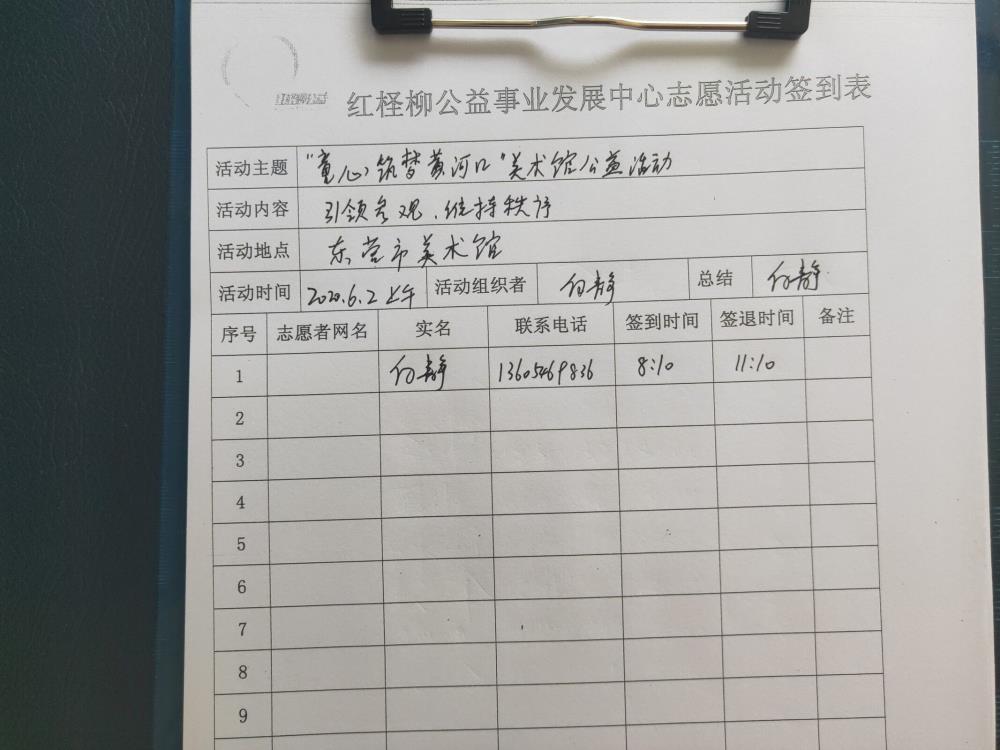 红柽柳公益事业发展中心志愿活动签到表
活动主题 "童心筑梦黄河口"美术馆公益活动
活动内容 引领参观、维持秩序
活动地点 东营市美术馆
活动时间 2020.6.2上午 活动组织者 何静 总结 何静
序号 志愿者网名 实名 联系电话 签到时间 签退时间 备注
1 何静 13605469836 8:10 11:10
2
3
4
5
6
7
8
9